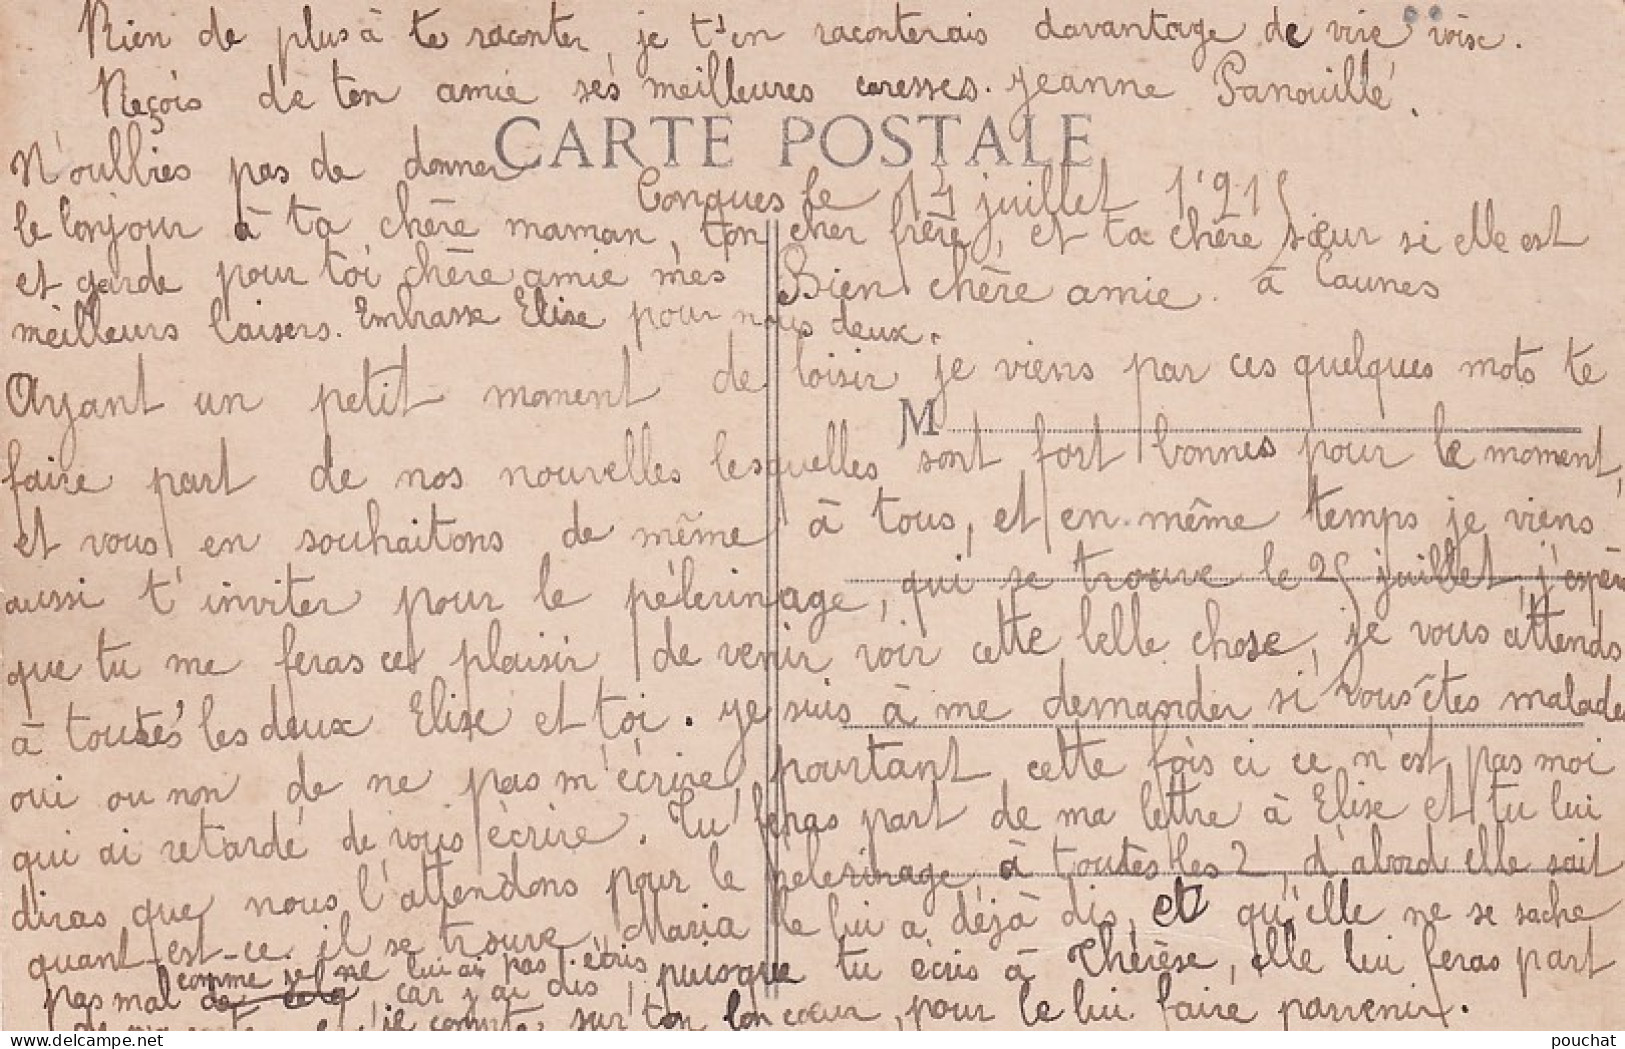 Rien de plus à te raconter, je t'en raconterais davantage de vive voix.
Reçois de ton amie ses meilleures caresses. Jeanne Panouillé.
CARTE POSTALE
N'oublies pas de donner
Conques le 14 juillet 1915
le bonjour à ta chère maman, ton cher frère, et ta chère sœur si elle est
à Caunes
et garde pour toi chère amie mes
meilleurs baisers. Embrasse Elise pour nous deux.
Bien chère amie.
Ayant un petit moment de loisir je viens par ces quelques mots te
M
faire part de nos nouvelles lesquelles sont fort bonnes pour le moment,
et vous en souhaitons de même à tous, et en même temps je viens
aussi t'inviter pour le pèlerinage, qui se trouve le 25 juillet, j'espère
que tu me feras ce plaisir de venir voir cette belle chose, je vous attends
à toutes les deux Elise et toi. Je suis à me demander si vous êtes malades
oui ou non de ne pas m'écrire, pourtant cette fois ci ce n'est pas moi
qui ai retardé de vous écrire. Tu feras part de ma lettre à Elise et tu lui
diras que nous l'attendons pour le pelerinage à toutes les 2, d'abord elle sait
quant-est-ce il se trouve, Maria le lui a déjà dis, et qu'elle ne se sache
pas mal comme je ne lui ai pas écris puisque tu écris à Thérèse, elle lui feras part
car j'ai dis,
et j'ie compte sur ton bon cœur, pour le lui faire parvenir.
www.delcampe.net
pouchat